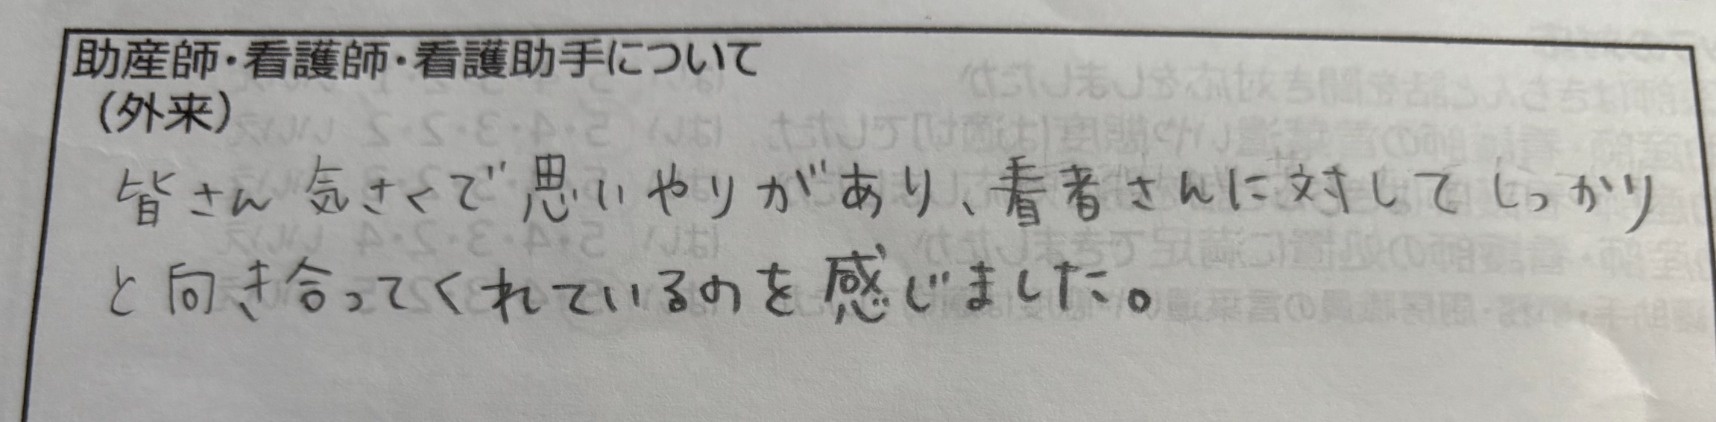 助産師・看護師・看護助手について
（外来）
皆さん気さくで思いやりがあり、看者さんに対してしっかり
と向き合ってくれているのを感じました。